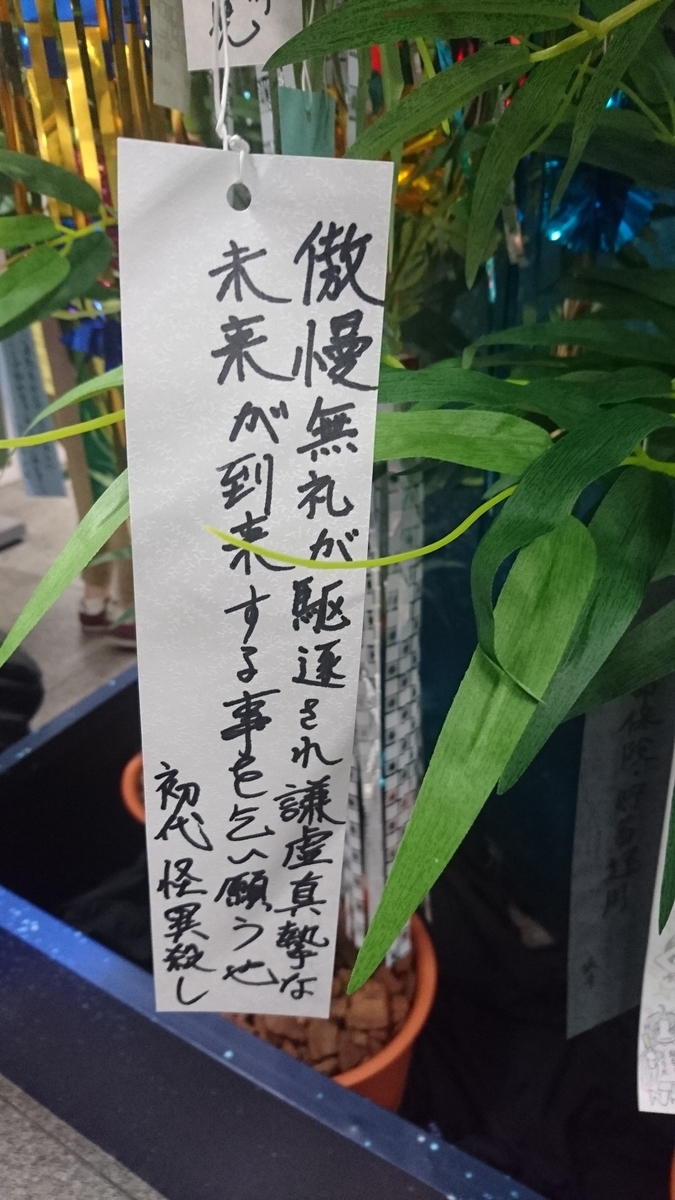 傲慢無礼が駆逐され謙虚真摯な
未来が到来する事を乞い願う也
初代怪異殺し